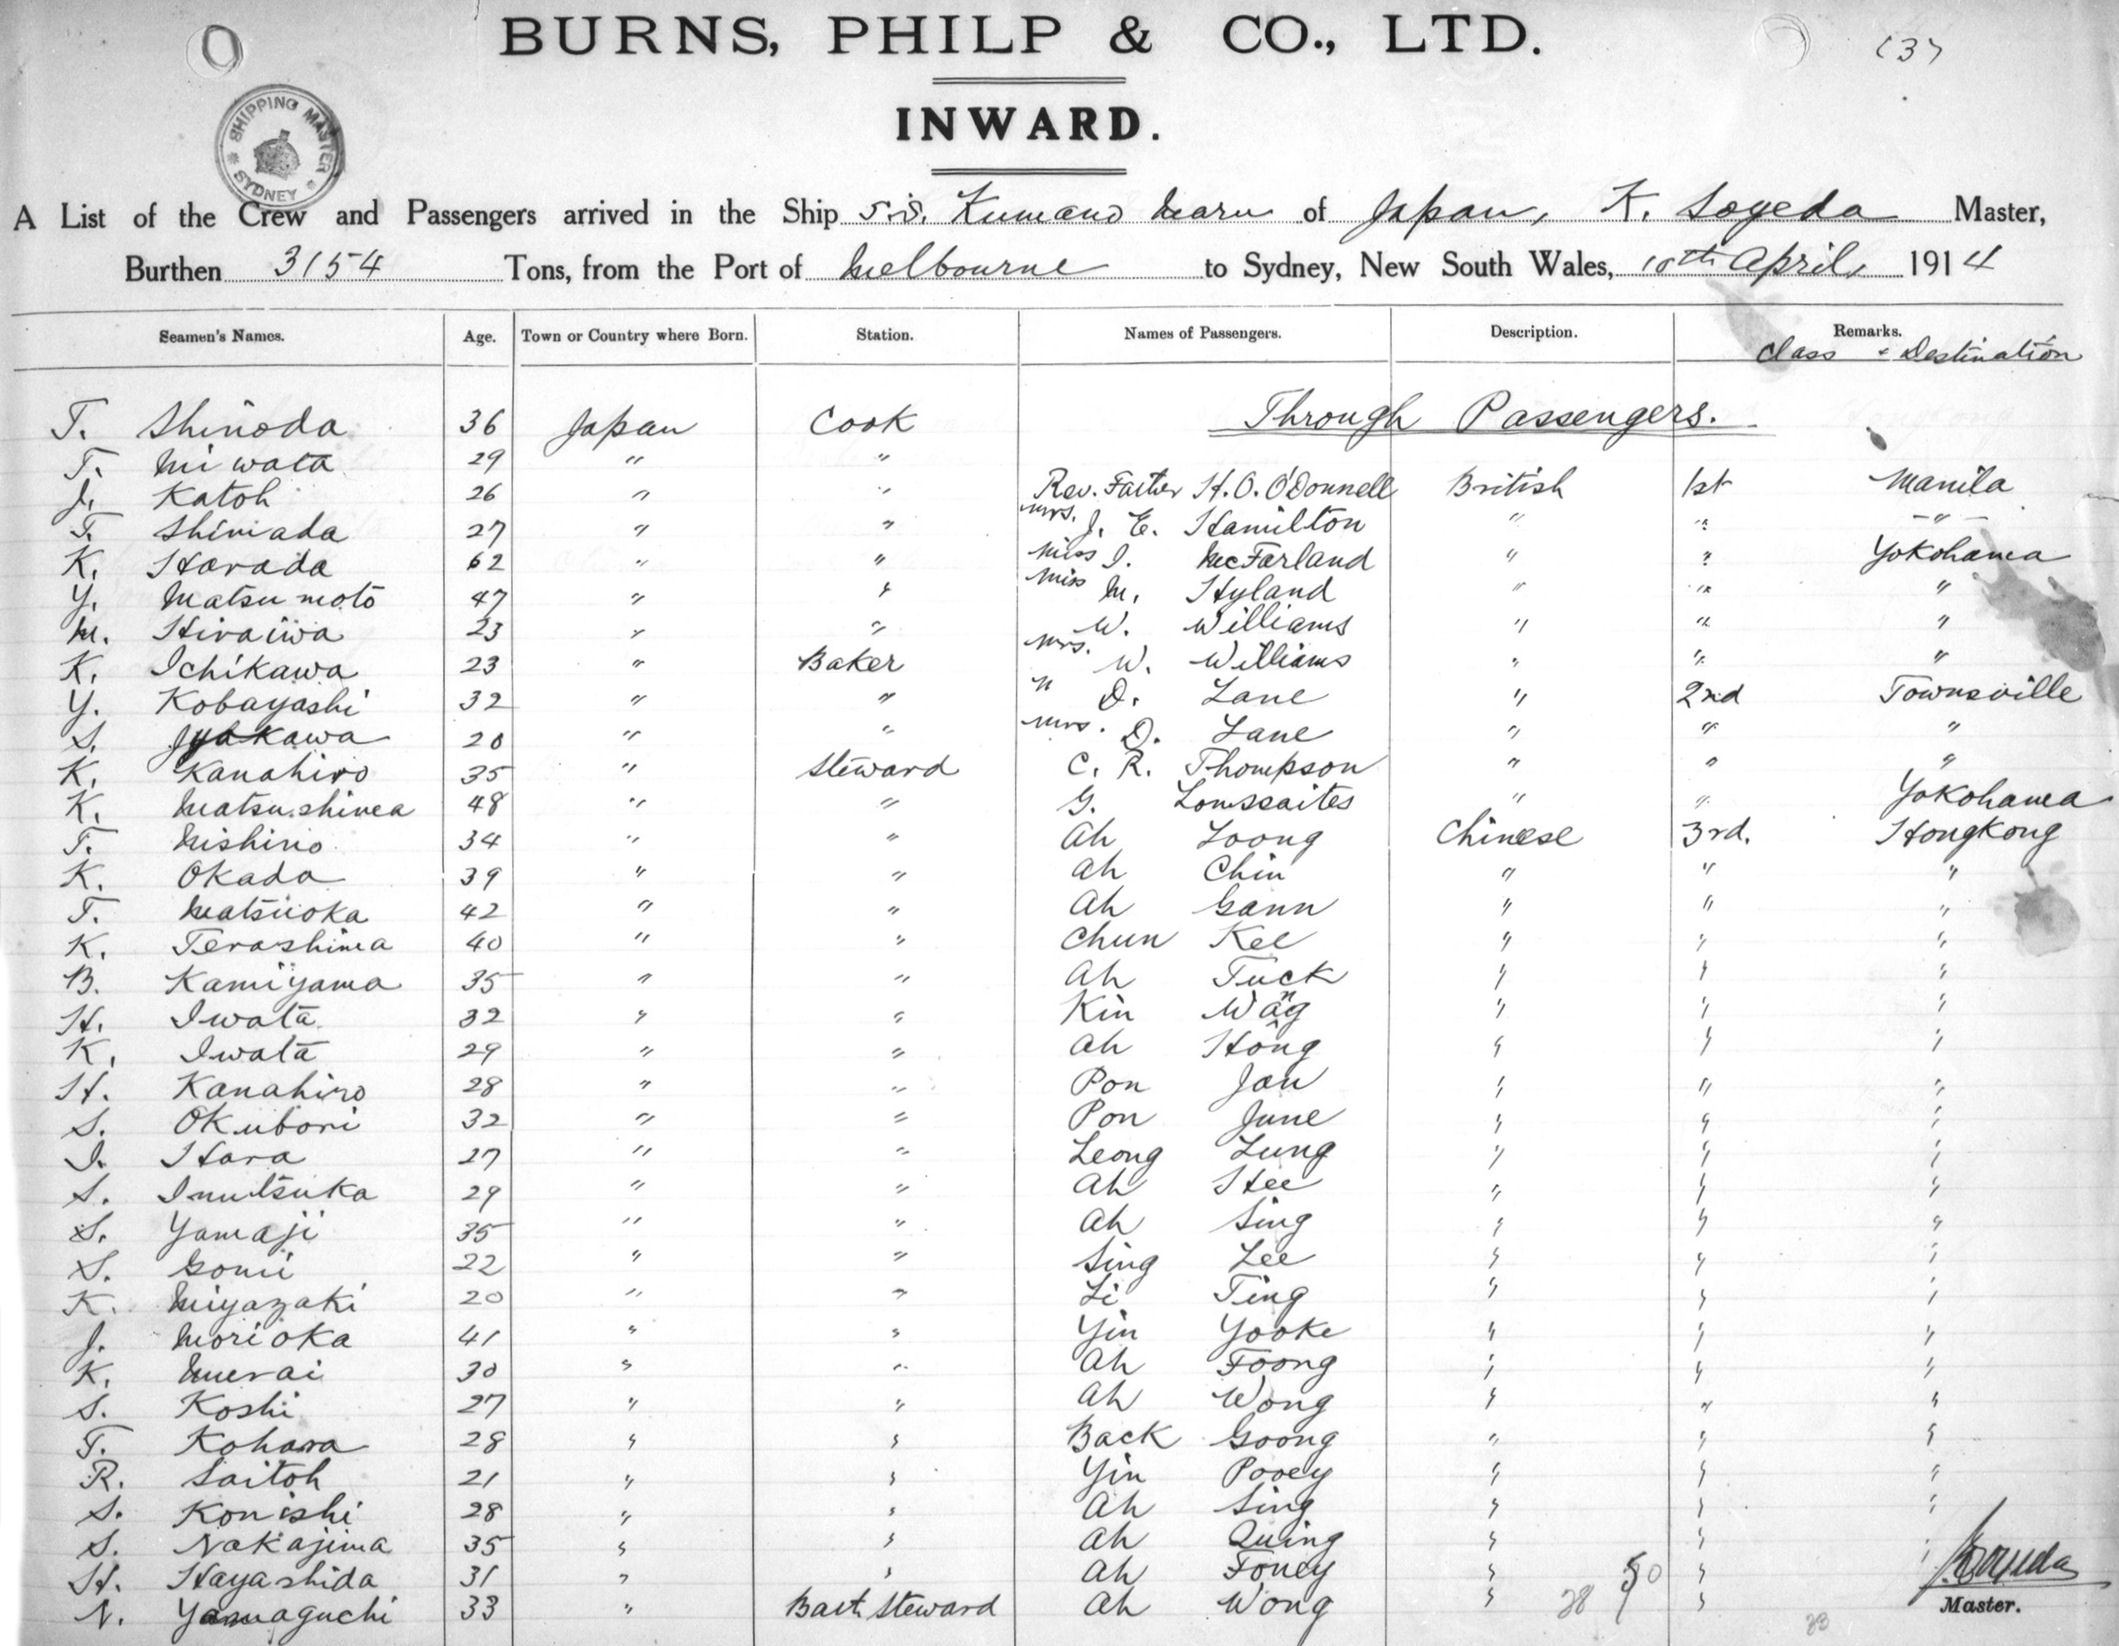 BURNS, PHILP & CO., LTD.
(3)
INWARD.
SHIPPING MASTER
SYDNEY
A List of the Crew and Passengers arrived in the Ship S.S. Kumano Maru of Japan, K. Soyeda Master,
Burthen 3154 Tons, from the Port of Melbourne to Sydney, New South Wales, 10th April, 1914
Seamen's Names. Age. Town or Country where Born. Station. Names of Passengers. Description. Remarks.
Class & Destination
T. Shinoda 36 Japan Cook Through Passengers.
T. Miwata 29 " "
J. Katoh 26 " " Rev. Father H. O. O'Donnell British 1st Manila
T. Shimada 27 " " Mrs. J. E. Hamilton " " "
K. Harada 62 " " Miss I. McFarland " " Yokohama
Y. Matsumoto 47 " " Miss M. Hyland " " "
M. Hiraiwa 23 " " W. Williams " " "
K. Ichikawa 23 " Baker Mrs. W. Williams " " "
Y. Kobayashi 32 " " " D. Lane " 2nd Townsville
S. 20 " " Mrs. D. Lane " " "
K. Kanahiro 35 " Steward C. R. Thompson " " "
K. Matsushima 48 " " G. " " Yokohama
T. Nishino 34 " " Ah Loong Chinese 3rd. Hongkong
K. Okada 39 " " Ah Chin " " "
T. Matsuoka 42 " " Ah Gann " " "
K. Terashima 40 " " Chun Kee " " "
B. Kamiyama 35 " " Ah Tuck " " "
H. Iwata 32 " " Kin Wang " " "
K. Iwata 29 " " Ah Hong " " "
H. Kanahiro 28 " " Pon Jan " " "
S. Okubori 32 " " Pon June " " "
I. Hara 27 " " Leong Lung " " "
S. Inutsuka 29 " " Ah Hee " " "
S. Yamaji 35 " " Ah Sing " " "
S. Gomi 22 " " Sing Lee " " "
K. Miyazaki 20 " " Li Ting " " "
J. Morioka 41 " " Yin Yooke " " "
K. Murai 30 " " Ah Foong " " "
S. Koshi 27 " " Ah Wong " " "
T. Kohara 28 " " Back Goong " " "
R. Saitoh 21 " " Yin Pooey " " "
S. Konishi 28 " " Ah Sing " " "
S. Nakajima 35 " " Ah Quing " " "
H. Hayashida 31 " " Ah Foney " "
N. Yamaguchi 33 " Steward Ah Wong " 28 "
Master.